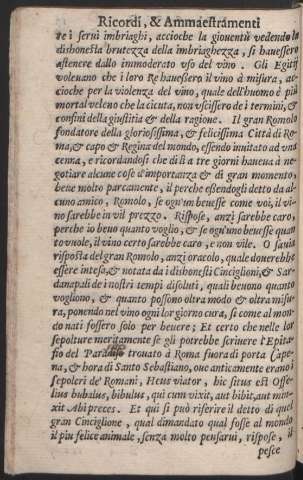 Ricordi, & Ammaestramenti
re i serui imbriaghi, accioche la giouentù vedendo la
dishonesta brutezza della imbriaghezza, si hauessero
astenere dallo immoderato vso del vino. Gli Egittij
voleuano che i loro Re hauessero il vino à misura, ac-
cioche per la violenza del vino, quale dell'huomo è più
mortal veleno che la cicuta, non vscissero de i termini, &
confini della giustitia & della ragione. Il gran Romolo
fondatore della gloriosissima, & felicissima Città di Ro-
ma, & capo & Regina del mondo, essendo inuitato ad vna
cenna, e ricordandosi che di lì a tre giorni haueua à ne-
gotiare alcune cose d'importanza & di gran momento,
beue molto parcamente, il perche essendogli detto da al-
cuno amico, Romolo, se ogn'un beuesse come voi, il vi-
no sarebbe in vil prezzo. Rispose, anzi sarebbe caro,
perche io beuo quanto voglio, & se ogn'uno beuesse quan
to vuole, il vino certo sarebbe caro, e non vile. O sauia
risposta del gran Romolo, anzi oracolo, quale douerebbe
essere intesa, & notata da i dishonesti Cinciglioni, & Sar-
danapali de i nostri tempi disoluti, quali beuono quanto
vogliono, & quanto possono oltra modo & oltra misu-
ra, ponendo nel vino ogni lor giorno cura, si come al mon
do nati fossero solo per beuere; Et certo che nelle lor
sepolture meritamente se gli potrebbe scriuere l'Epita-
fio del trouato à Roma fuora di porta Cape-
na, & hora di Santo Sebastiano, oue anticamente erano i
sepolcri de' Romani, Heus viator, hic situs est Offel-
lius bubalus, bibulus, qui cum vixit, aut bibit, aut min-
xit Abi preces. Et qui si può riferire il detto di quel
gran Cinciglione, qual dimandato qual fosse al mondo
il piu felice animale, senza molto pensarui, rispose, il
pesce